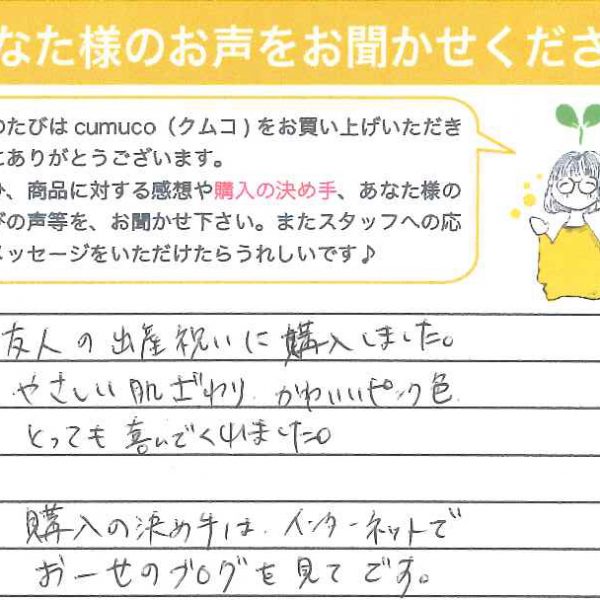 なた様のお声をお聞かせくださ
のたびは cumuco（クムコ）をお買い上げいただき
にありがとうございます。
、商品に対する感想や購入の決め手、あなた様の
びの声等を、お聞かせ下さい。またスタッフへの応
メッセージをいただけたらうれしいです♪
友人の出産祝いに購入しました。
やさしい肌ざわり、かわいいピンク色
とっても喜んでくれました。
購入の決め手は、インターネットで
おーせのブログを見てです。